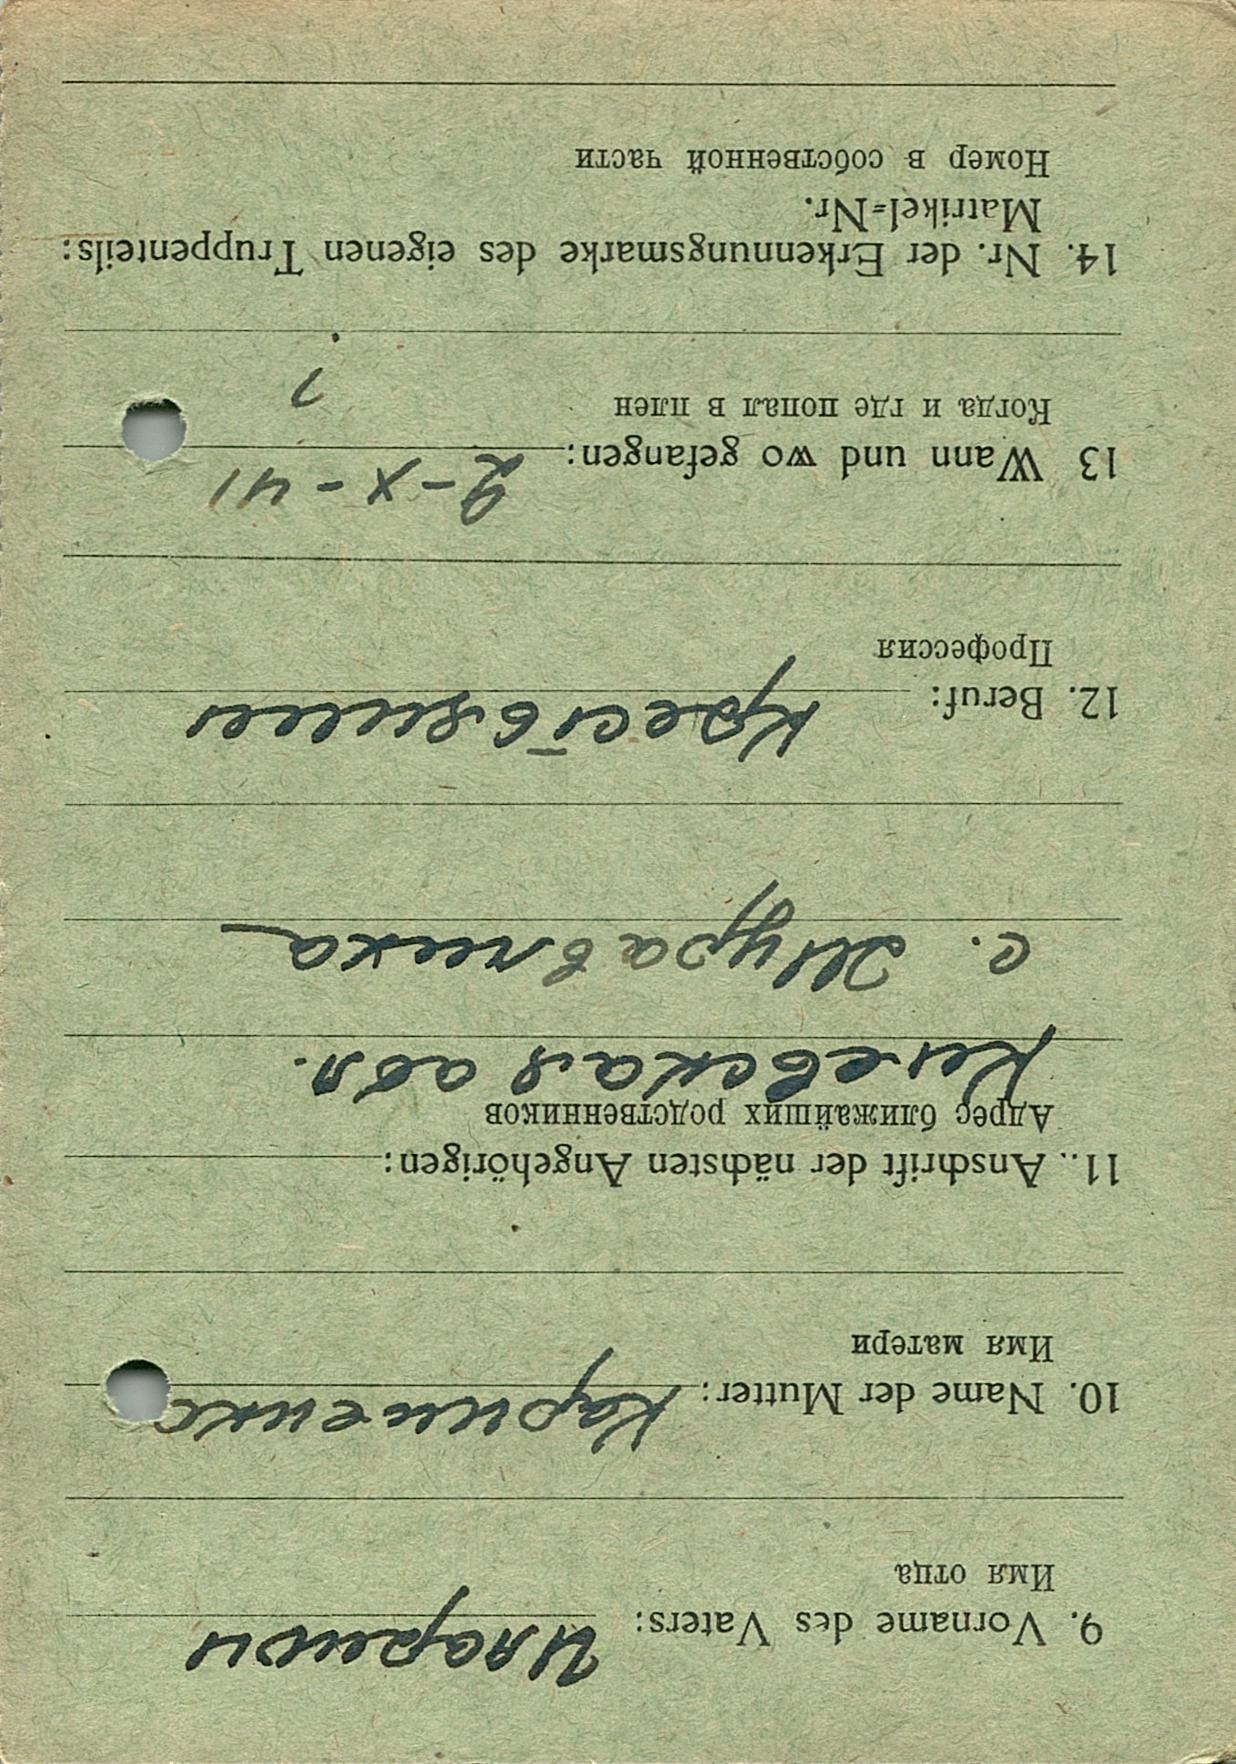 9. Vorname des Vaters: Иларион
Имя отца
10. Name der Mutter: Кариненко
Имя матери
11.. Anschrift der nächsten Angehörigen:
Адрес ближайших родственников
Киевская обл.
с. Журавлиха
12. Beruf: Крестьянин
Профессия
13 Wann und wo gefangen: 2-X-41
Когда и где попал в плен ?
14. Nr. der Erkennungsmarke des eigenen Truppenteils:
Matrikel=Nr.
Номер в собственной части